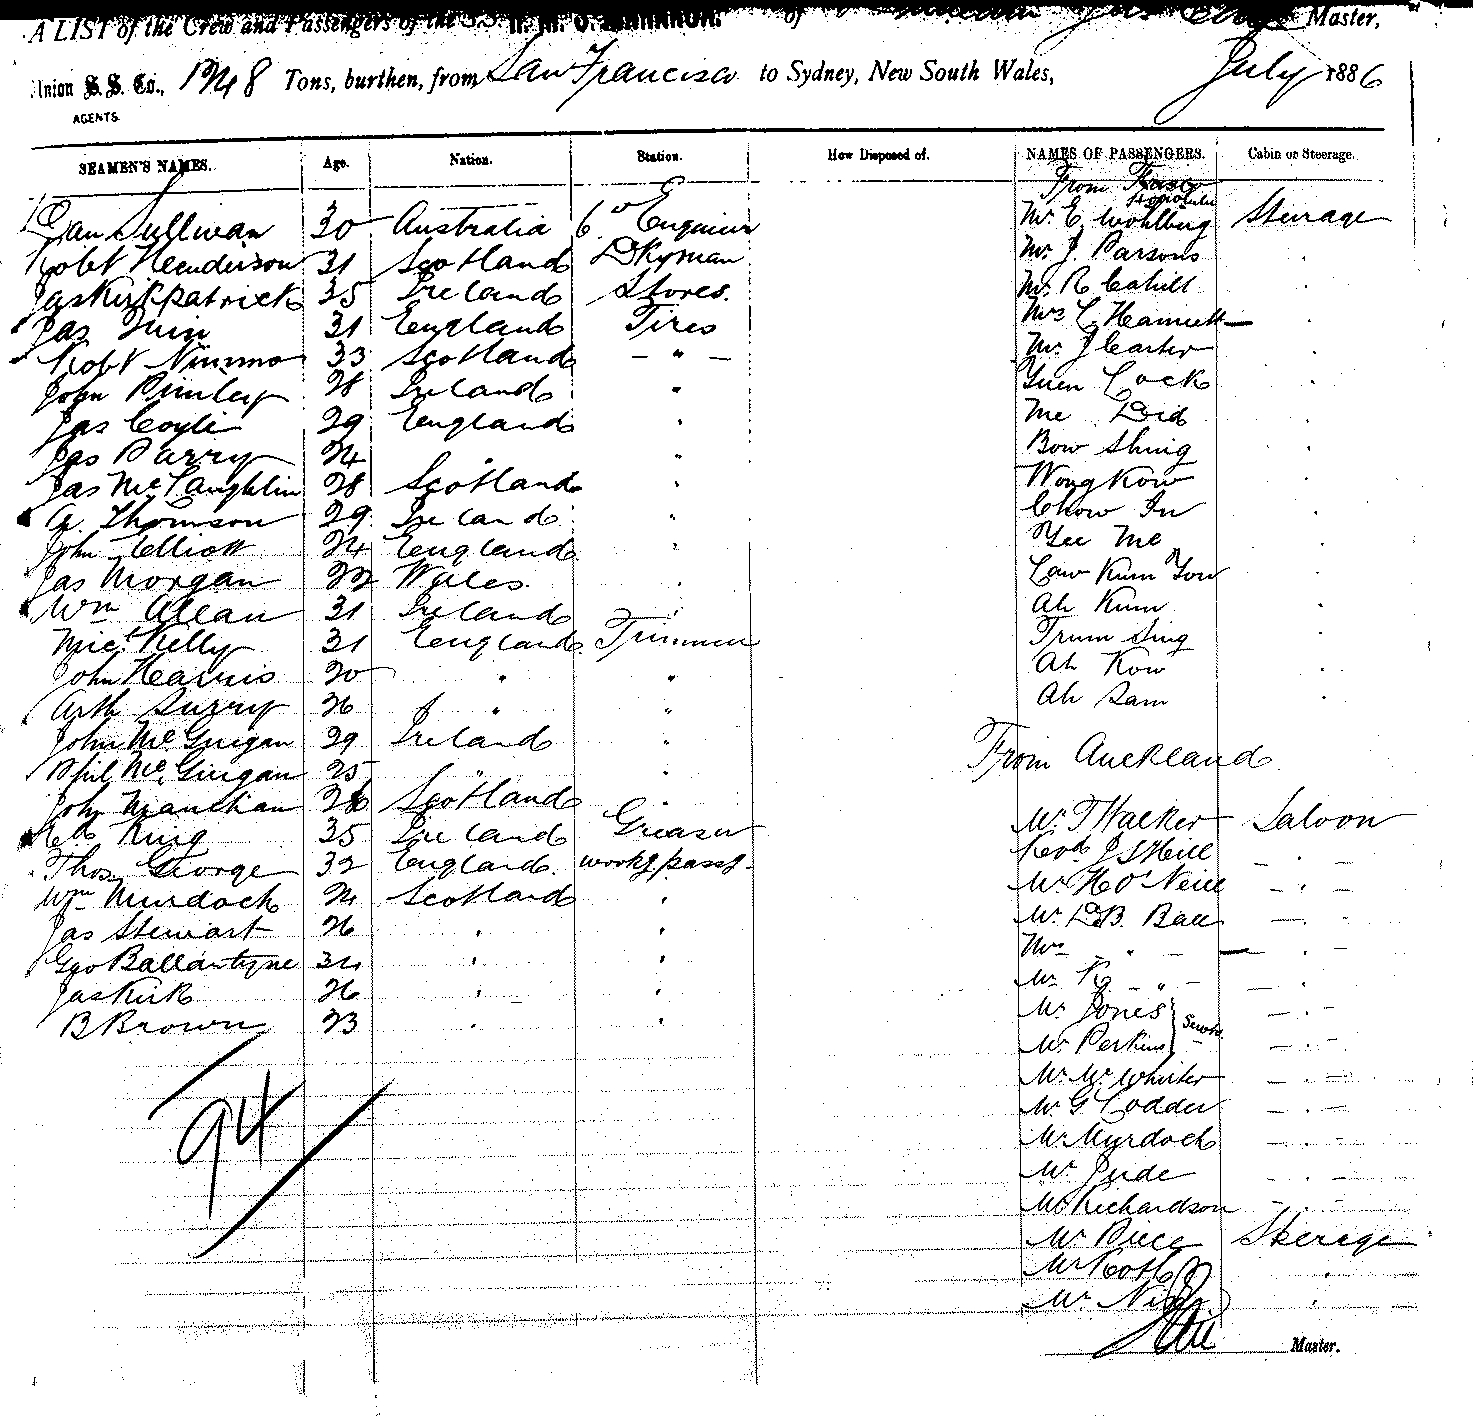 A LIST of the Crew and Passengers of the SS. of Master,
Union S. S. Co., Tons, burthen, from San Francisco to Sydney, New South Wales, July 1886
AGENTS.
SEAMEN'S NAMES. Age. Nation. Station. How Disposed of. NAMES OF PASSENGERS. Cabin or Steerage.
From
Honolulu
Dan Sullivan 30 Australia 6" Engineer Mr E Wohlburg Steerage
Robt Henderson 31 Scotland Dkyman Mr J. Parsons "
Jas Kirkpatrick 35 Ireland Stores. Mr R Cahill "
Jas 31 England Fires Mrs C "
Robt Nimmo 33 Scotland — " — Mr J Carter "
John 28 Ireland " Yuen Cock "
Jas Coyle 29 England " Me Did "
Jas Parry 24 " " Bow Shing "
Jas McLaughlin 28 Scotland " Wong Kow "
A. Thomson 29 Ireland " Chow In "
John Elliott 24 England " Yee Me "
Jas Morgan 22 Wales " Law Kum Yow "
Wm Allan 31 Ireland " Ah Kum "
Micl Kelly 31 England Trimmer Sing "
John 20 " " Ah Kow "
Arth Surry 26 " " Ah Sam "
John McGuigan 29 Ireland "
Phil McGuigan 25 " " From Auckland
John 26 Scotland "
King 35 Ireland Greaser Mr T Walker Saloon
Thos George 32 England workg passg. Revd J S Hill — " —
Wm Murdoch 24 Scotland " Mr H O'Neill — " —
Jas Stewart 26 " " Mr D.B. Ball — " —
Geo Ballantyne 34 " " Mrs — " — — " —
Jas Kirk 26 " " Mr R — " — — " —
B Brown 23 " " Mr Jones — " —
Mr Perkins — " —
Mr McWhirter — " —
94 Mr G Codder — " —
Mr Murdoch — " —
Mr Jude — " —
Mr Richardson — " —
Mr Price Steerage
Mr "
Mr "
Master.